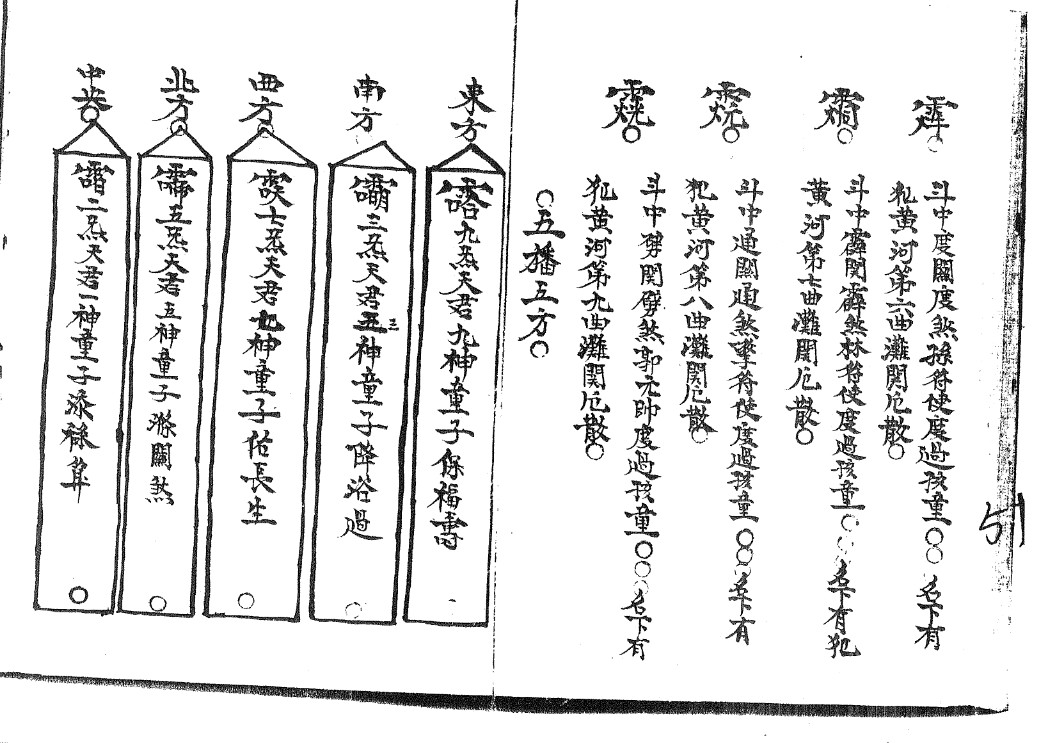 斗中度關度煞孫符使度過孩童〇〇名下有
犯黃河第六曲灘関厄散〇
斗中霹関霹煞林符使度過孩童〇〇名下有犯
黃河第七曲灘関厄散〇
斗中通關通煞畢符使度過孩童〇〇〇名下有
犯黃河第八曲灘関厄散〇
斗中劈関劈煞郭元帥度過孩童〇〇〇名下有
犯黃河第九曲灘関厄散〇
〇五播五方〇
東方
九炁天君九神童子保福壽
南方
三炁天君五三神童子降浴過
西方
七炁天君九神童子佑長生
〇
北方
五炁天君五神童子滌關煞
〇
中央
二炁天君一神童子添祿算
〇
51